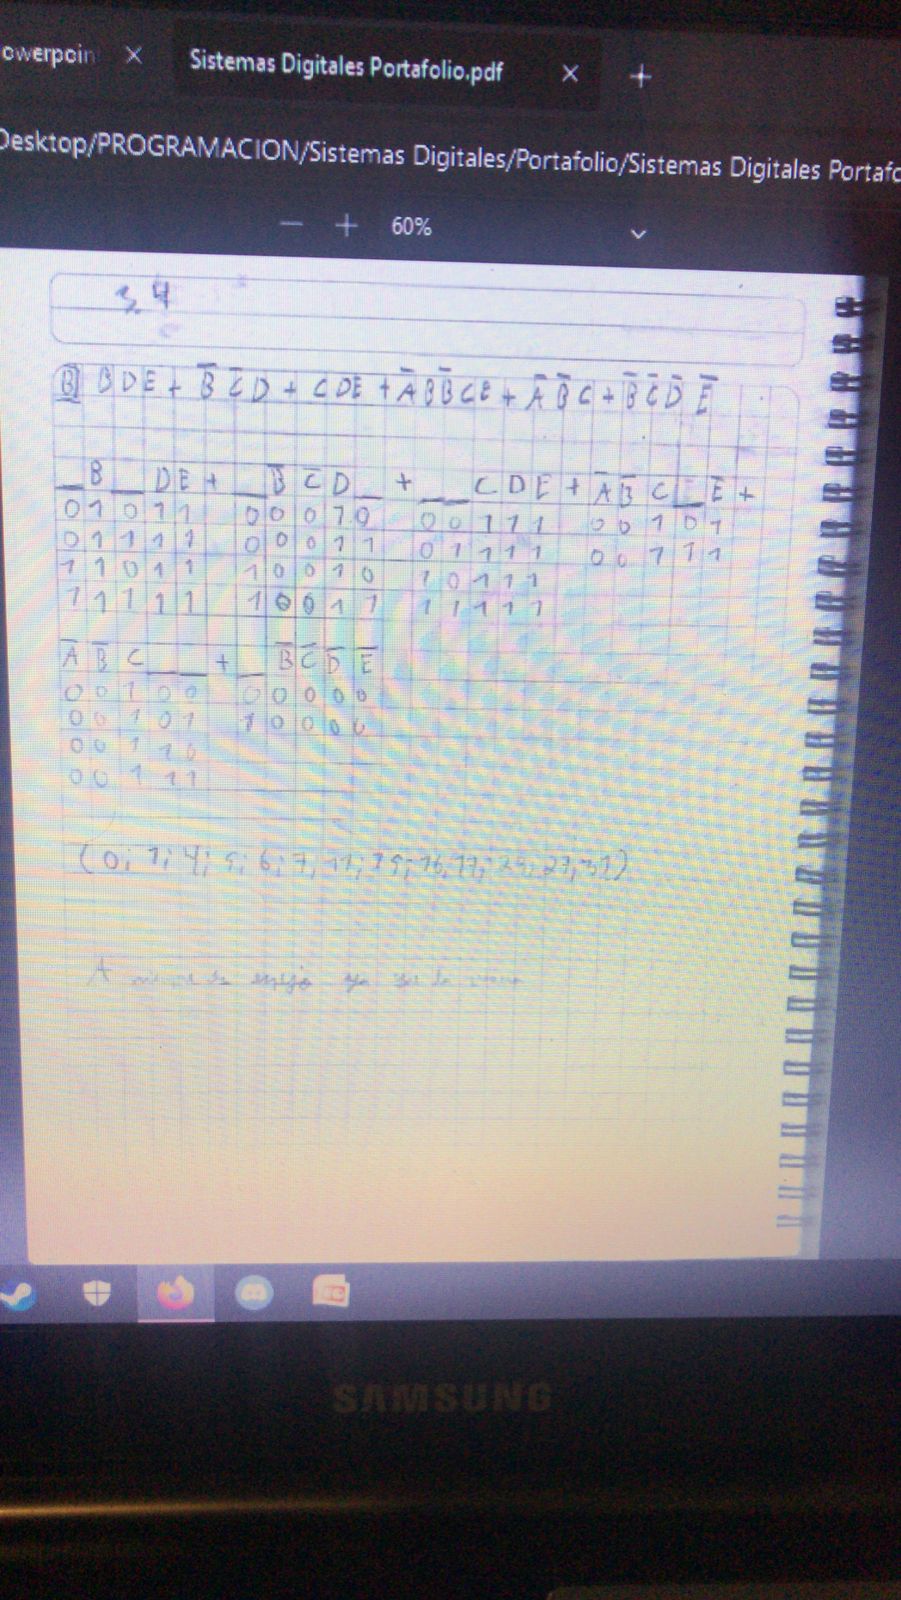 owerpoin
Sistemas Digitales Portafolio.pdf
Desktop/PROGRAMACION/Sistemas Digitales/Portafolio/Sistemas Digitales Portafo
60%
3.4
B) B D E + B̅ C̅ D + C D E + A̅ B B̅ C E + A̅ B̅ C + B̅ C̅ D̅ E̅
_ B _ D E + _ B̅ C̅ D _ + _ _ C D E + A̅ B̅ C _ E +
0 1 0 1 1 0 0 0 1 0 0 0 1 1 1 0 0 1 0 1
0 1 1 1 1 0 0 0 1 1 0 1 1 1 1 0 0 1 1 1
1 1 0 1 1 1 0 0 1 0 1 0 1 1 1
1 1 1 1 1 1 0 0 1 1 1 1 1 1 1
A̅ B̅ C _ _ + _ B̅ C̅ D̅ E̅
0 0 1 0 0 0 0 0 0 0
0 0 1 0 1 1 0 0 0 0
0 0 1 1 0
0 0 1 1 1
(0; 1; 4; 5; 6; 7; 11; 15; 16, 17; 27, 31)
A
SAMSUNG